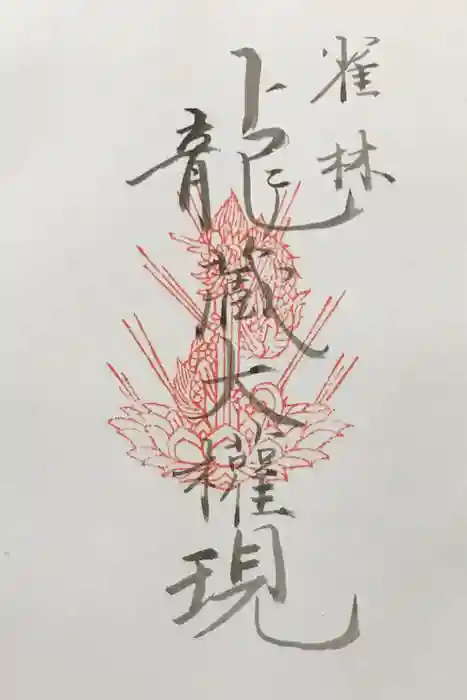 雀林
龍蔵大権現